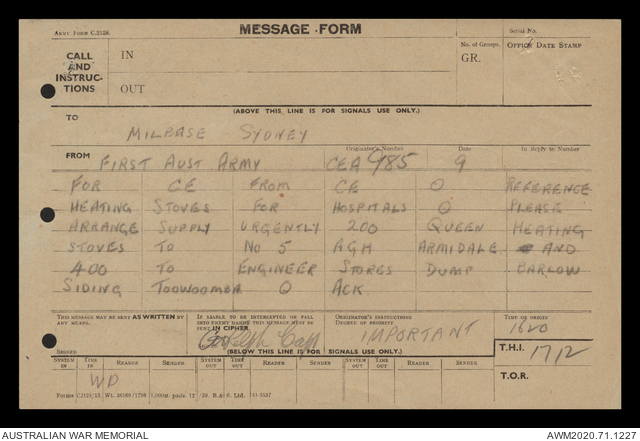 ARMY FORM C.2128.
MESSAGE FORM
Serial No.
CALL AND INSTRUCTIONS
IN
No. of Groups. GR.
OFFICE DATE STAMP
OUT
(ABOVE THIS LINE IS FOR SIGNALS USE ONLY.)
TO
MILBASE - SYDNEY
FROM FIRST AUST ARMY
Originator's Number CEA 985
Date 9
In Reply to Number
FOR CE FROM CE O REFERENCE
HEATING STOVES FOR HOSPITALS O PLEASE
ARRANGE SUPPLY URGENTLY 200 QUEEN HEATING
STOVES TO No 5 AGH ARMIDALE AND
400 TO ENGINEER STORES DUMP BARLOW
SIDING TOOWOOMBA O ACK
THIS MESSAGE MAY BE SENT AS WRITTEN BY ANY MEANS.
IF LIABLE TO BE INTERCEPTED OR FALL INTO ENEMY HANDS THIS MESSAGE MUST BE SENT IN CIPHER.
ORIGINATOR'S INSTRUCTIONS DEGREE OF PRIORITY
TIME OF ORIGIN
IMPORTANT
1620
SIGNED
Capt
(BELOW THIS LINE IS FOR SIGNALS USE ONLY.)
T.H.I. 1712
SYSTEM IN TIME IN READER SENDER SYSTEM OUT TIME OUT READER SENDER SYSTEM OUT TIME OUT READER SENDER
T.O.R.
WD
AUSTRALIAN WAR MEMORIAL
AWM2020.71.1227